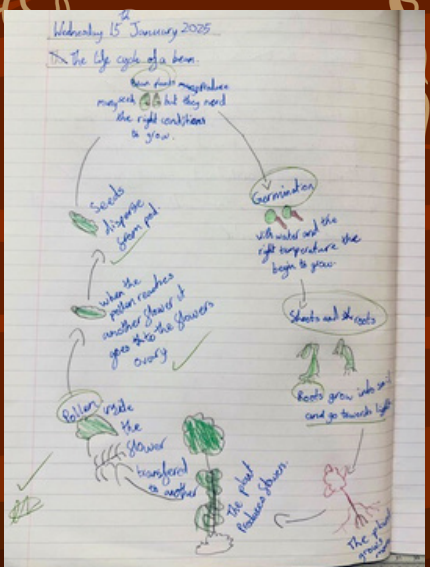 Wednesday 15th January 2025
The life cycle of a bean.
Bean plants produce
many seeds but they need
the right conditions
to grow.
Germination
with water and the
right temperature the
begin to grow.
Shoots and roots
Roots grow into soil
and go towards light
The plant
grows
The plant
Produces flowers.
Pollen inside
the
flower
transferred
to another
when the
pollen reaches
another flower it
goes to the flowers
ovary
Seeds
disperse
from pod.